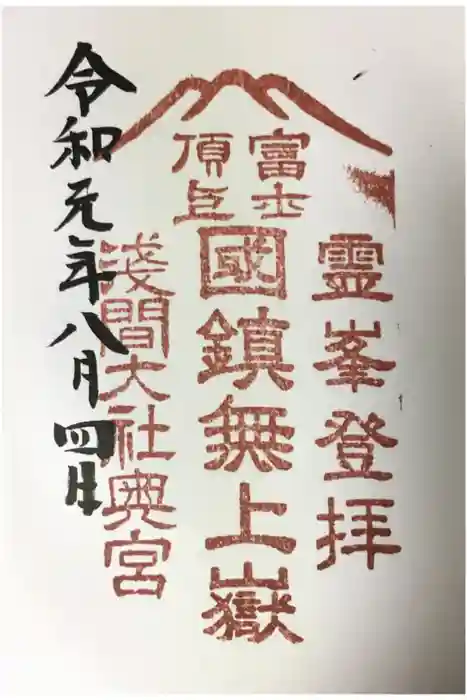 霊峯登拝
富士
頂上
國鎮無上嶽
浅間大社奥宮
令和元年八月四日